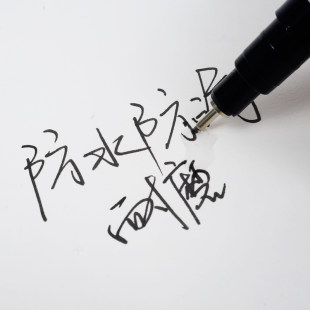 防水防
耐磨